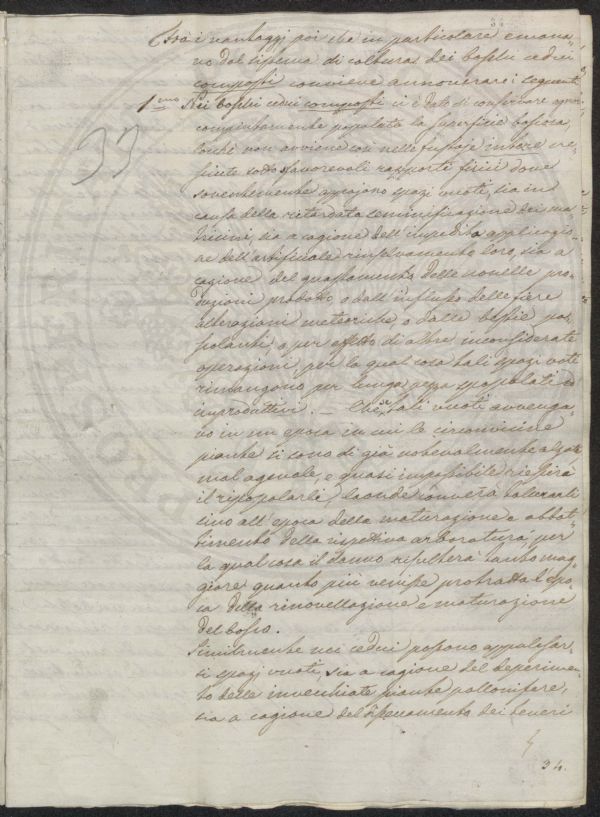 Tra i vantaggj poi che in particolare emana-
no dal sistema di coltura dei boschi cedui
composti conviene annoverare i seguenti
1.mo Nei boschi cedui composti ci è dato di conservare ognor
compiutamente popolata la superficie boscosa,
locchè non avviene così nelle fustaje intiere cre-
sciute sotto sfavorevoli rapporti fisici dove
soventemente appajono spazj vuoti, sia in
causa della ritardata seminificazione dei ma-
tricini, sia a cagione dell'impedita applicagio-
ne dell'artificiale rinselvamento loro, sia a
cagione del guastamento delle novelle pro-
duzioni prodotto, o dall'influsso delle fiere
alterazioni meteoriche o dalle bestie pa-
scolanti, o per effetto di altre inconsiderate
operazioni, per la qual cosa tali spazj voti
rimangono per lunga pezza spopolati ed
inproduttivi. — Chè, tali vuoti avvenga-
no in un epoca in cui le circonvicine
piante si sono di già notevolmente alzate
mal agevole, e quasi impossibile riescirà
il ripopolarli, laonde converrà tolerarli
sino all'epoca della maturazione e abbat-
timento della rispettiva arboratura, per
la qual cosa il danno risulterà tanto mag-
giore quanto più venisse protratta l'epo-
ca della rinovellazione e maturazione
del bosco.
Similmente nei cedui possono appalesar-
si spazj vuoti, sia a cagione del deperimen-
to delle invecchiate piante pollonifere,
sia a cagione del dei teneri
34.
33